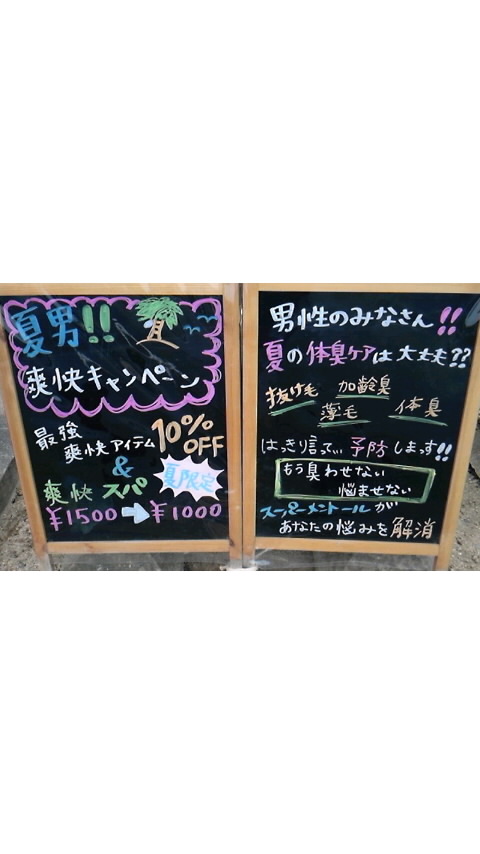 夏男!!
爽快キャンペーン
最強
爽快アイテム 10%
OFF
&
爽快スパ
夏限定
¥1500 ➡ ¥1000
男性のみなさん!!
夏の体臭ケアは大丈夫??
抜け毛 加齢臭
薄毛 体臭
はっきり言って予防します!!
もう臭わせない
悩ませない
スーパーメントールが
あなたの悩みを解消